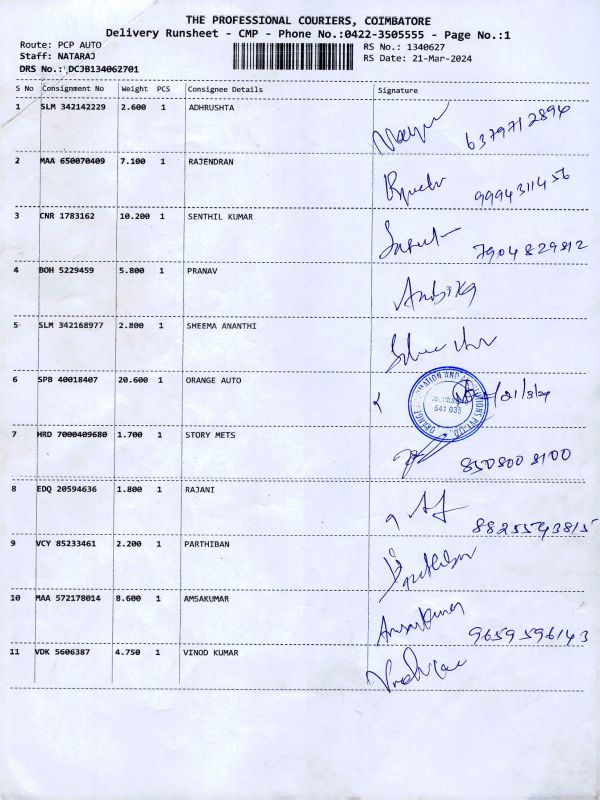 THE PROFESSIONAL COURIERS, COIMBATORE
Delivery Runsheet - CMP - Phone No.:0422-3505555 - Page No.:1
Route: PCP AUTO
RS No.: 1340627
Staff: NATARAJ
RS Date: 21-Mar-2024
DRS No.: DCJB134062701
S No Consignment No Weight PCS Consignee Details Signature
1 SLM 342142229 2.600 1 ADHRUSHTA
6379712894
2 MAA 650070409 7.100 1 RAJENDRAN
9994311456
3 CNR 1783162 10.200 1 SENTHIL KUMAR
7904829812
4 BOH 5229459 5.800 1 PRANAV
Ambika
5 SLM 342168977 2.800 1 SHEEMA ANANTHI
6 SPB 40018407 20.600 1 ORANGE AUTO
641 035
21/3/24
7 HRD 7000409680 1.700 1 STORY METS
8508008100
8 EDQ 20594636 1.800 1 RAJANI
8825543815
9 VCY 85233461 2.200 1 PARTHIBAN
10 MAA 572178014 8.600 1 AMSAKUMAR
Amsakumar 9659596143
11 VDK 5606387 4.750 1 VINOD KUMAR